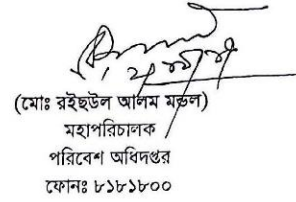 (মোঃ রইছউল আলম মন্ডল)
মহাপরিচালক
পরিবেশ অধিদপ্তর
ফোনঃ ৮১৮১৮০০